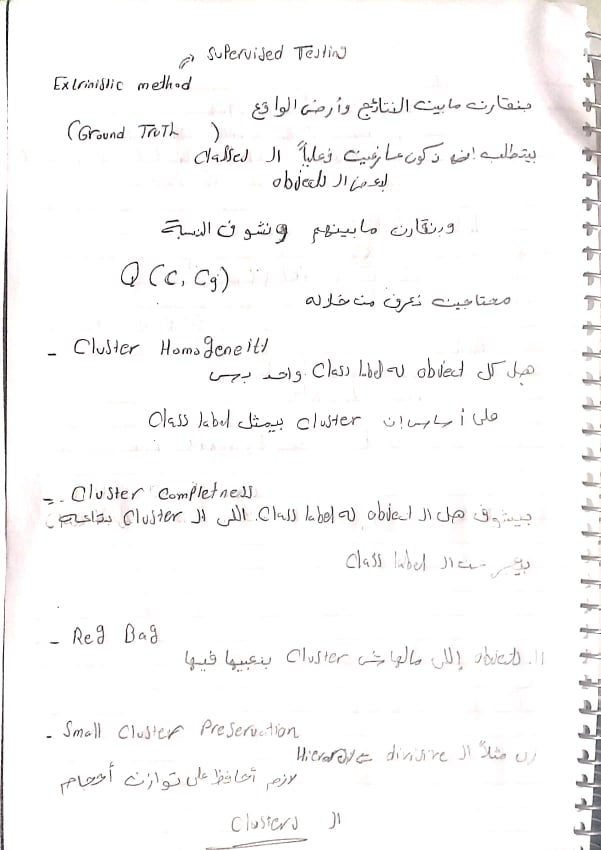 Supervised Testing
Extrinistic method
بنقارن ما بين النتائج وأرض الواقع
(Ground Truth )
بيتطلب ان نكون عارفين فعلياً ال classes
لبعض ال objects
وبنقارن ما بينهم ونشوف النسبة
Q (C, Cg)
محتاجين نعرف من خلاله
- Cluster Homogeneity
هل كل object له Class label واحد بس
على أساس إن cluster بيمثل Class label
- Cluster Completness
بيشوف هل ال object له Class label اللي ال Cluster
ال Class label
- Reg Bag
ال objects إللي مالهاش Cluster بنعبيها فيها
- Small Cluster Preservation
زي مثلاً ال divisive
لازم أحافظ على توازن أحجام
ال Clusters